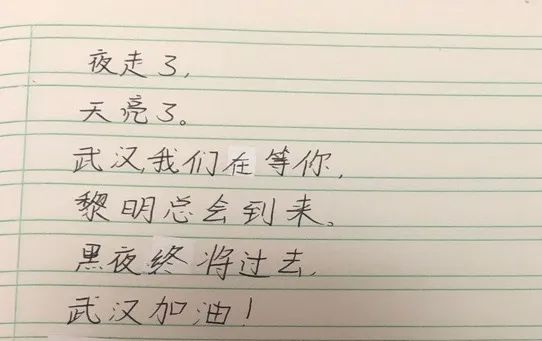 夜走了,
天亮了。
武汉,我们在等你,
黎明总会到来。
黑夜终将过去,
武汉加油!